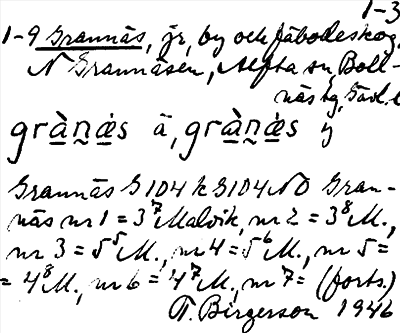 1-3
1-9 Grannäs, jr, by och fäbodeskog,
N Grannäsen, Alfta sn, Boll-
näs tg, Gävl. l
grànás ä, grànás y
Grannäs G 104 k G 104 NO Gran-
näs nr 1 = 3⁷ Malvik, nr 2 = 3⁸ M.,
nr 3 = 5⁵ M., nr 4 = 5⁶ M., nr 5 =
= 4⁸ M., nr 6 = 4⁷ M., nr 7 = (forts.)
T. Birgerson 1946